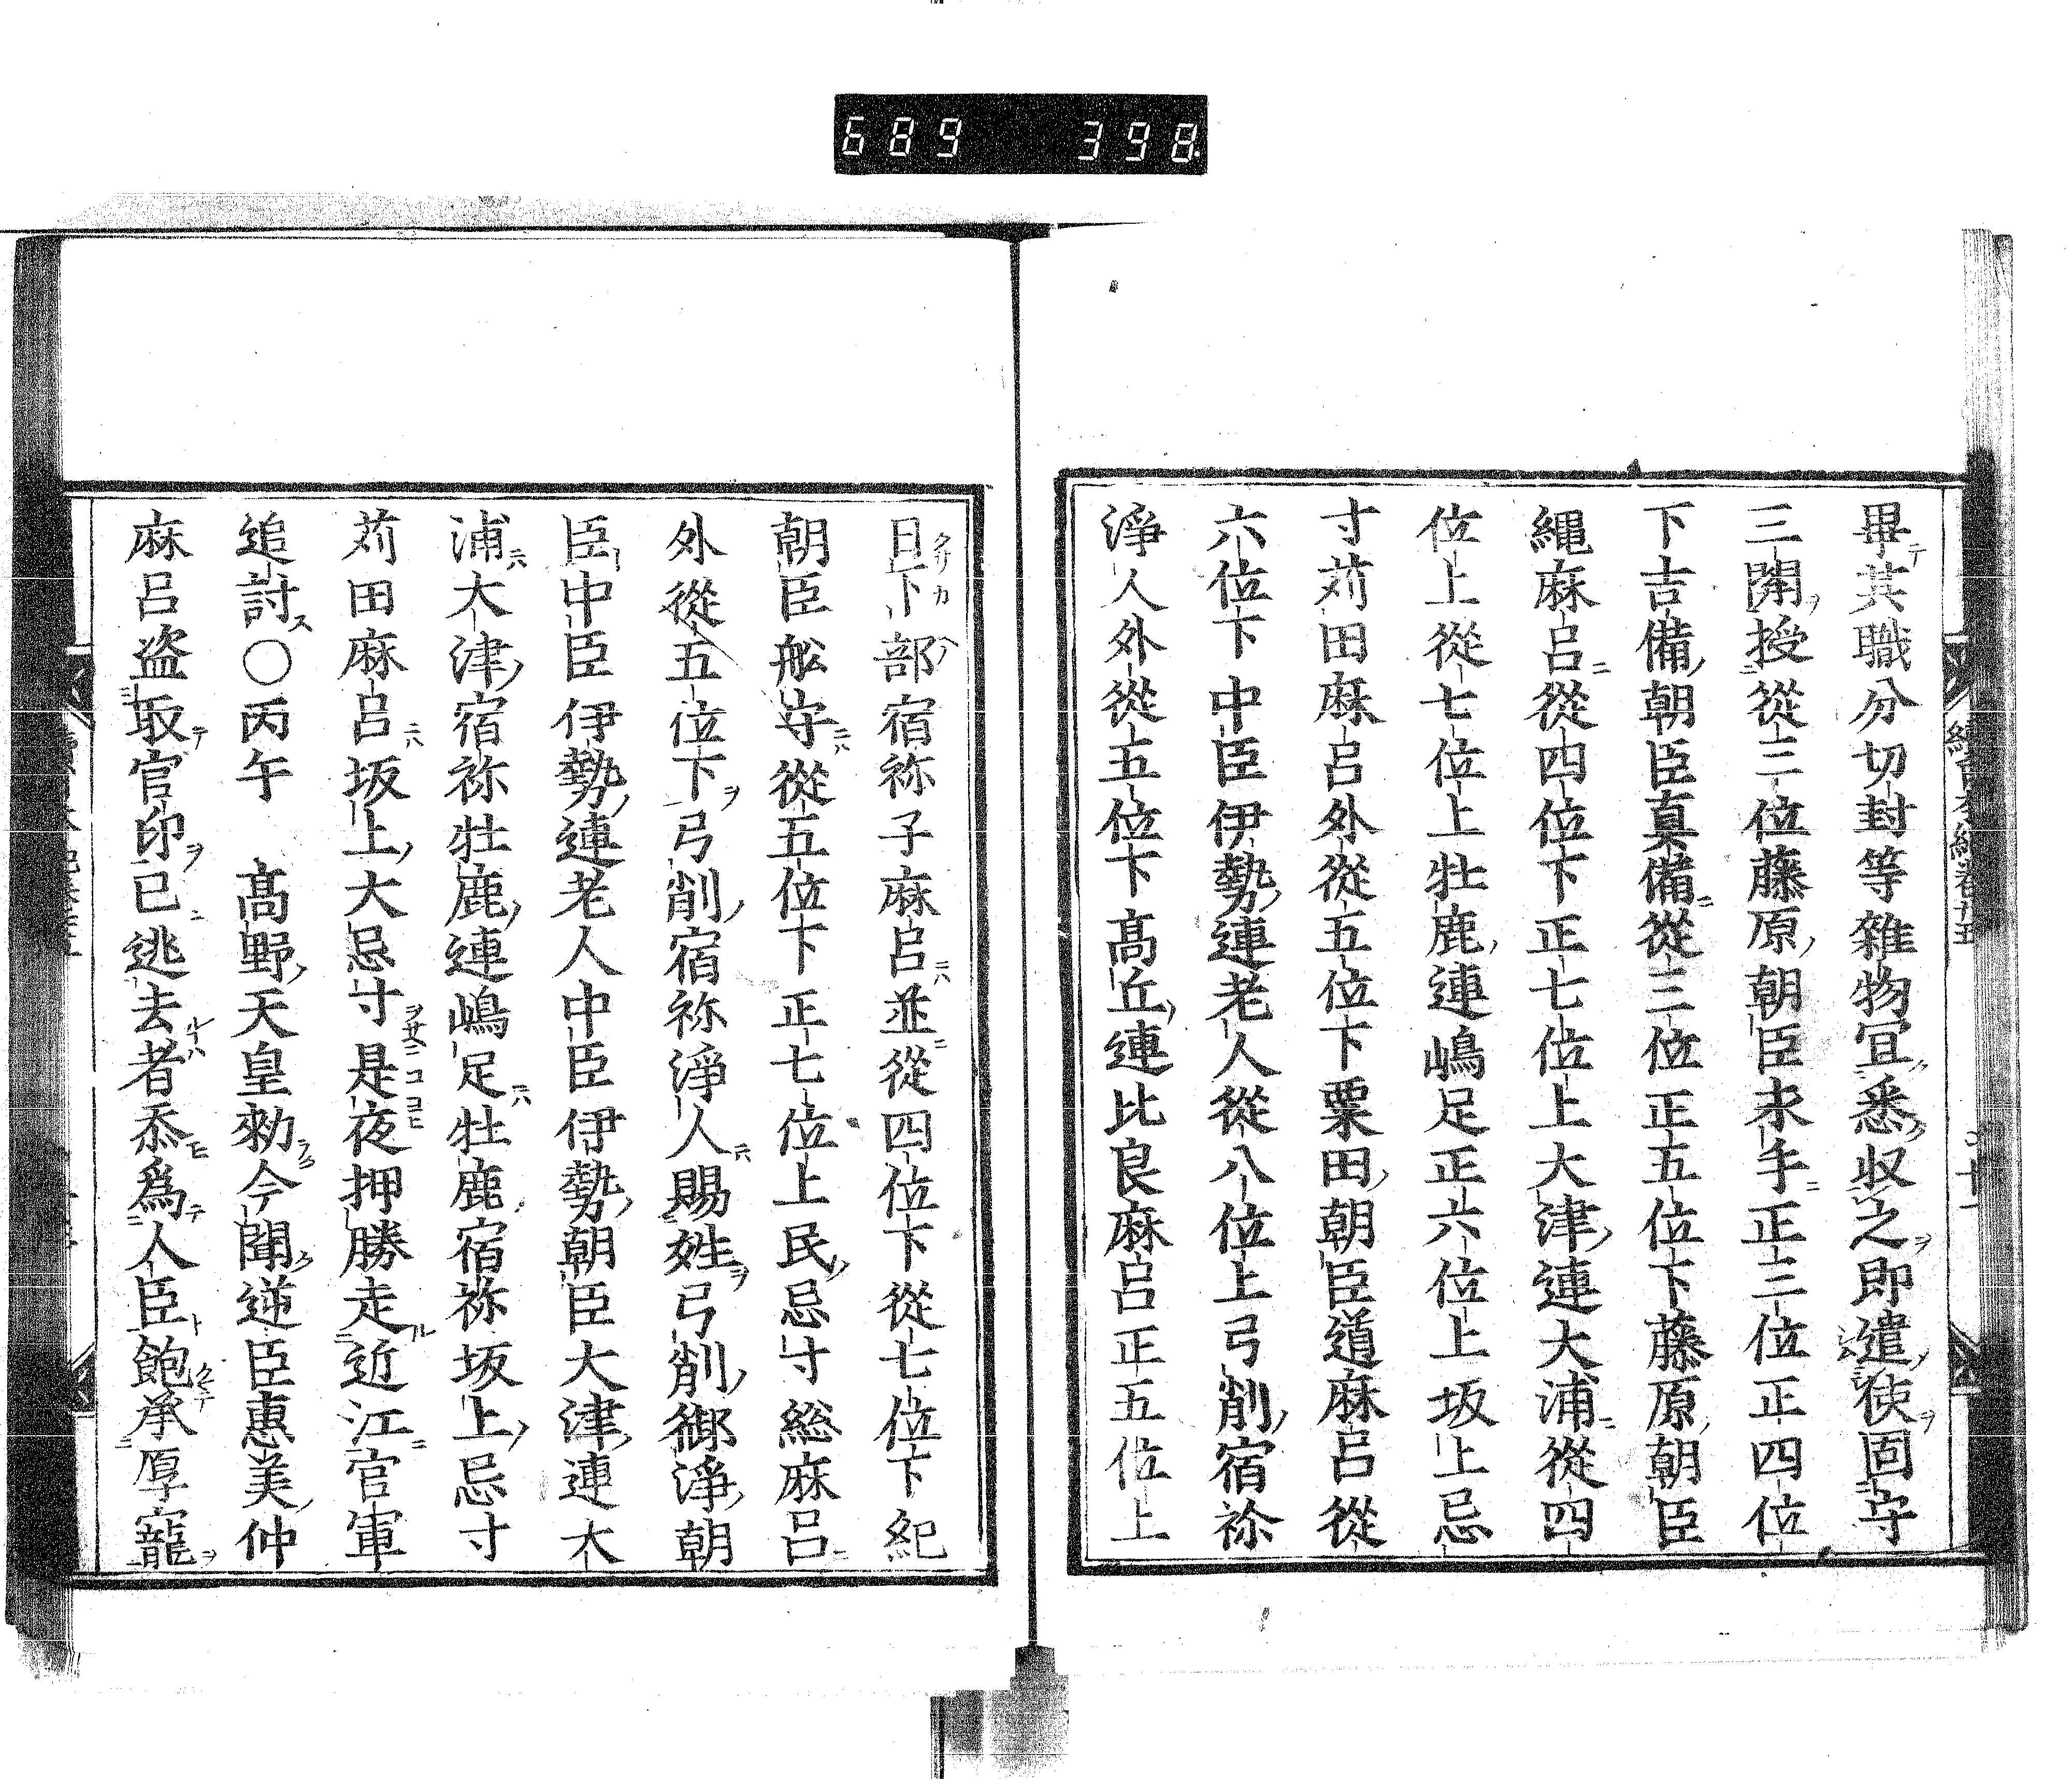 689 398
畢其職分切封等雜物冝悉収之即遣使固守
三關授從三位藤原朝臣永手正三位正四位
下吉備朝臣真備從三位正五位下藤原朝臣
繩麻呂從四位下正七位上大津連大浦從四
位上從七位上牡鹿連嶋足正六位上坂上忌
寸苅田麻呂外從五位下粟田朝臣道麻呂從
六位下中臣伊勢連老人從八位上弓削宿祢
淨人外從五位下髙丘連比良麻呂正五位上
日下部宿祢子麻呂並從四位下從七位下紀
朝臣舩守從五位下正七位上民忌寸総麻呂
外從五位下弓削宿祢淨人賜姓弓削御淨朝
臣中臣伊勢連老人中臣伊勢朝臣大津連大
浦大津宿祢牡鹿連嶋足牡鹿宿祢坂上忌寸
苅田麻呂坂上大忌寸是夜押勝走近江官軍
追討〇丙午　髙野天皇勑今聞逆臣惠美仲
麻呂盗取官印已逃去者忝爲人臣飽承厚寵